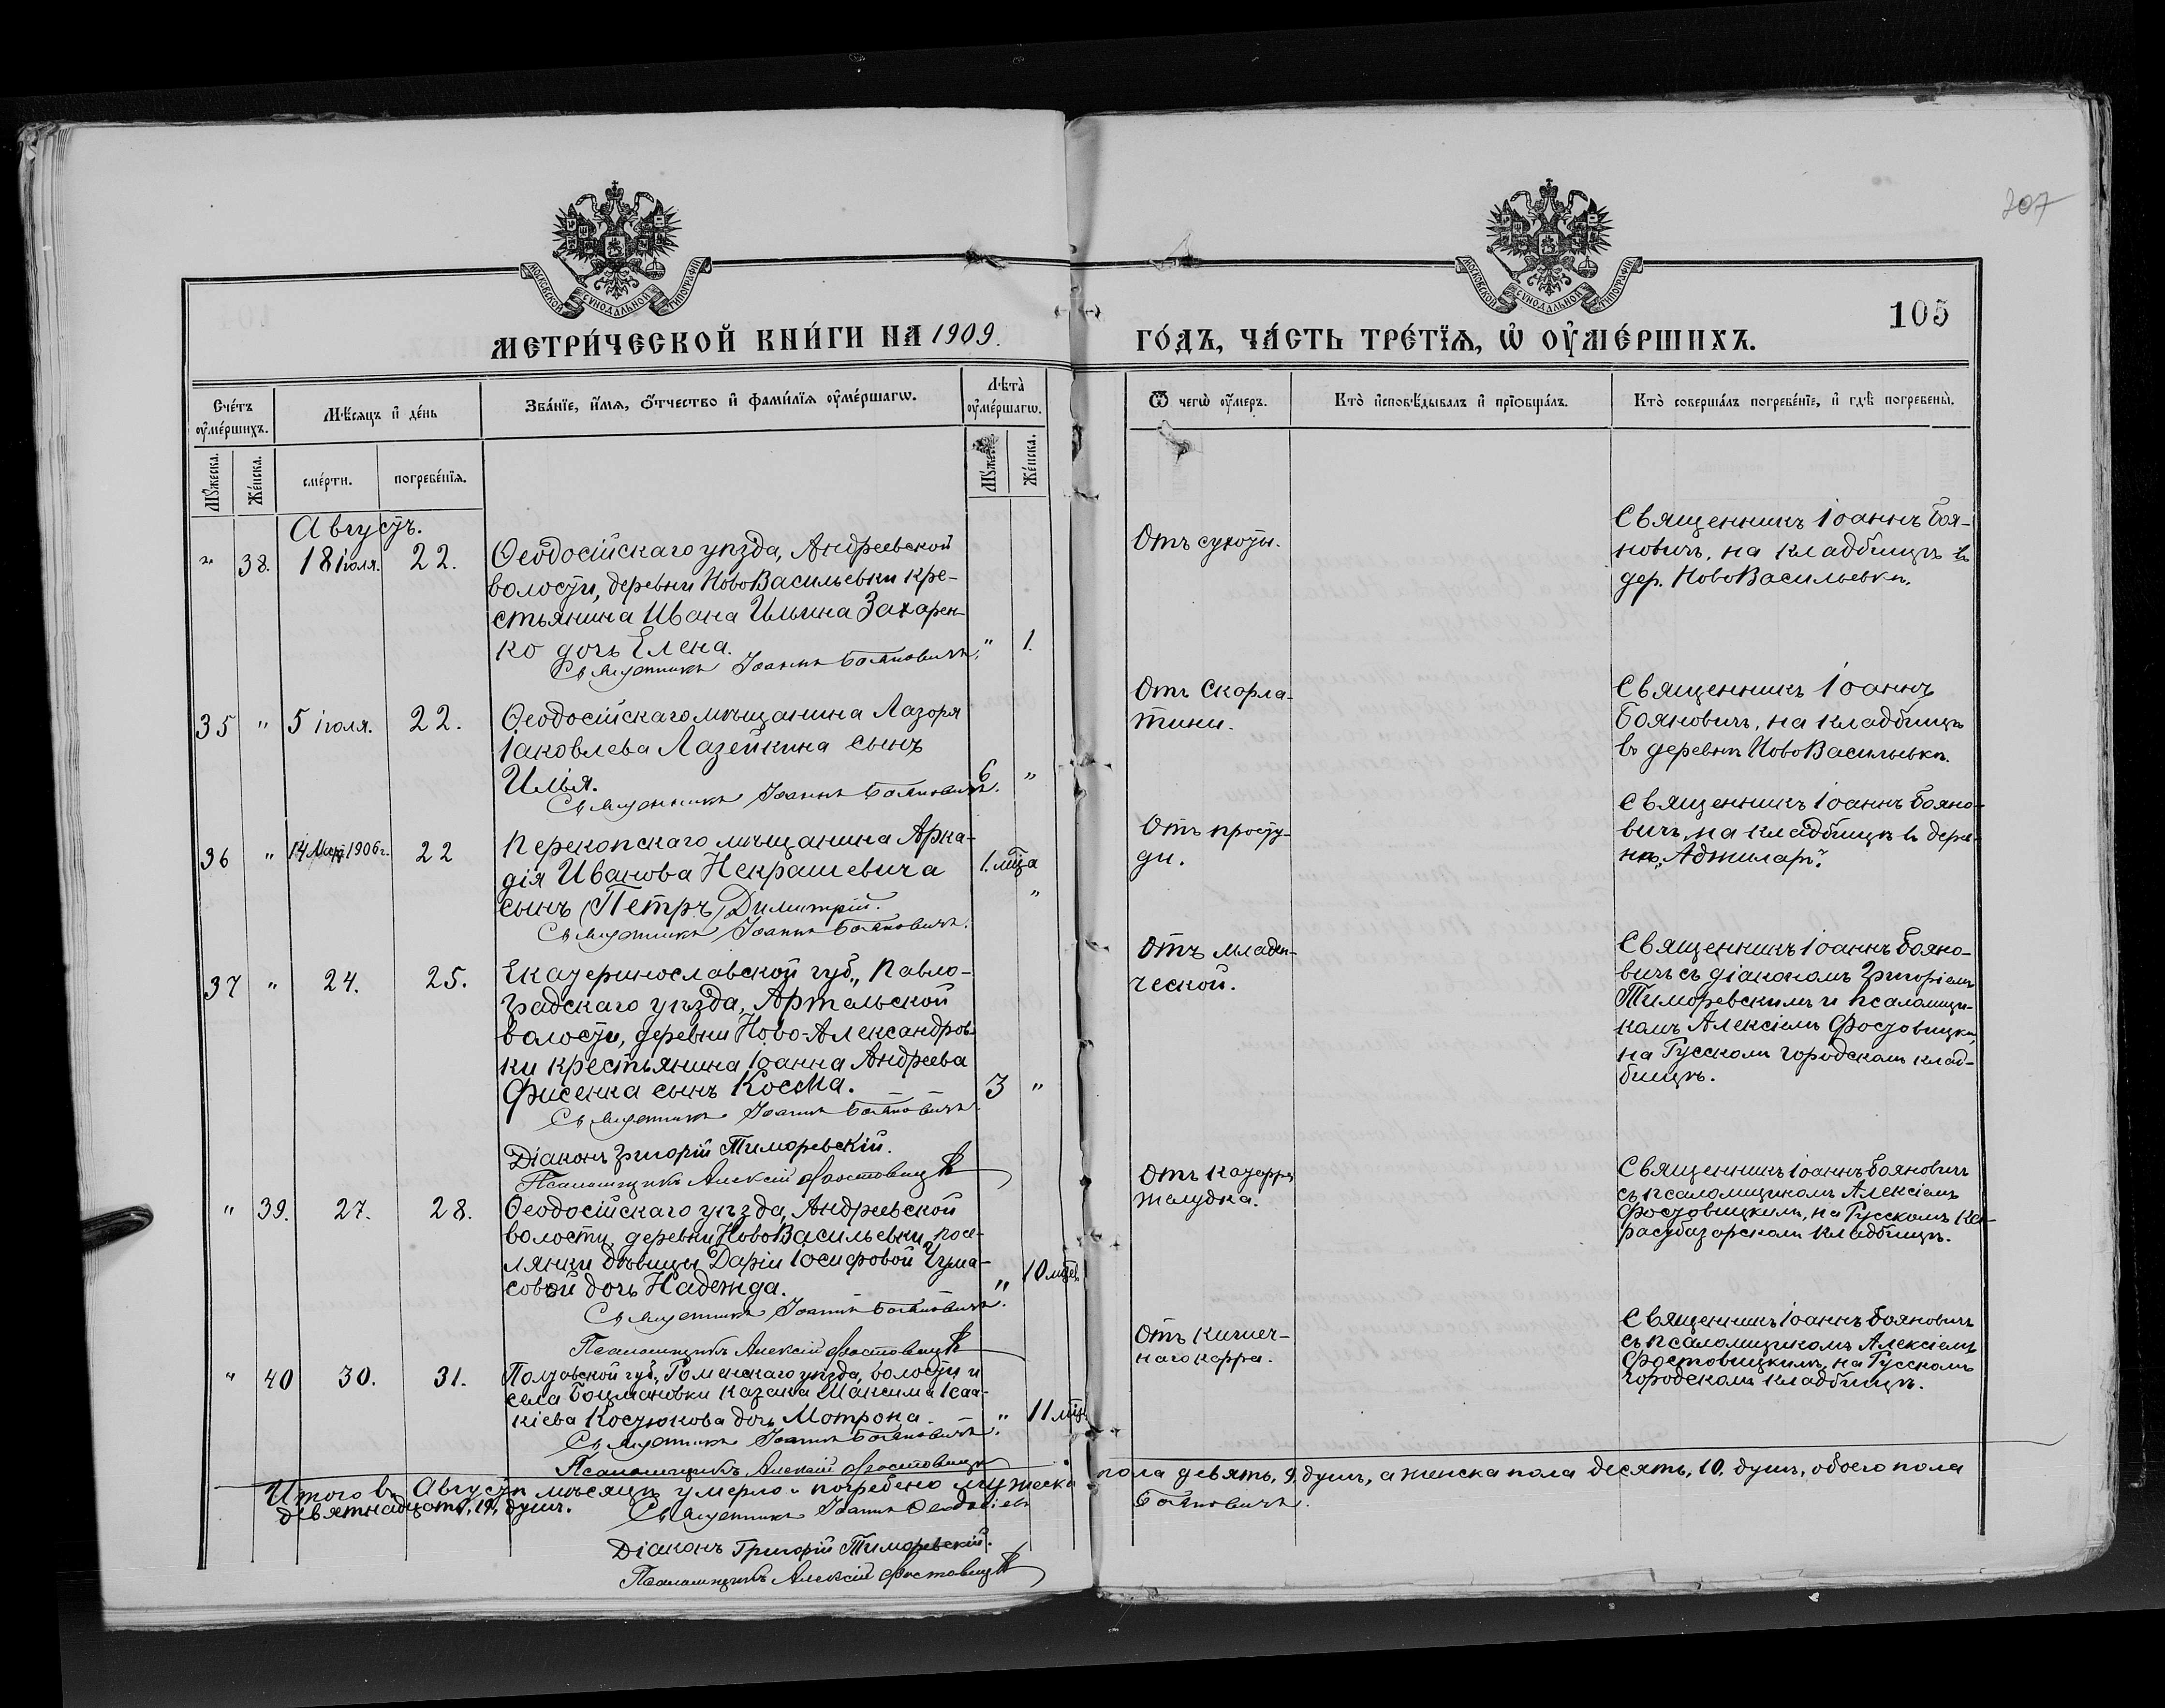 207
МОСКОВСКОЙ СУНОДАЛЬНОЙ ТИПОГРАФІИ
МОСКОВСКОЙ СУНОДАЛЬНОЙ ТИПОГРАФІИ
105
МЕТРИ́ЧЕСКОЙ КНИ́ГИ НА 1909.
ГО́ДЪ, ЧА́СТЬ ТРЕ́ТЇѦ, Ѡ҆ ОУ҆МЕ́РШИХЪ.
Сче́тъ оу҆ме́ршихъ.
Мѣ́сяцъ и҆ де́нь
Зва́нїе, и҆́мѧ, ѻ҆́тчество и҆ фами́лїѧ оу҆ме́ршагѡ.
Лѣ́та̀ оу҆ме́ршагѡ.
Ѿ чегѡ̀ оу҆́меръ.
Кто̀ и҆сповѣ́дывалъ и҆ прїѡбща́лъ.
Кто̀ соверша́лъ погребе́нїе, и҆ гдѣ̀ погребены̀.
Мꙋ́жеска.
Же́нска.
сме́рти.
погребе́нїѧ.
Мꙋ́жеска.
Же́нска.
Августъ.
" 38. 18 іюля. 22.
Ѳеодосійскаго уѣзда, Андреевской
волости, деревни НовоВасильевки кре-
стьянина Ивана Ильина Захарен-
ко дочь Елена.
" 1.
Священникъ Іоаннъ Бояновичъ.
Отъ сухоты.
Священникъ Іоаннъ Боя-
новичъ, на кладбищѣ въ
дер. НовоВасильевкѣ.
35 " 5 іюля. 22.
Ѳеодосійскаго мѣщанина Лазоря
Іаковлева Лазейкина сынъ
Илья.
6 "
Священникъ Іоаннъ Бояновичъ.
Отъ скарла-
тины.
Священникъ Іоаннъ
Бояновичъ, на кладбищѣ
въ деревнѣ НовоВасильевкѣ.
36 " 14 1906г. 22
Перекопскаго мѣщанина Арка-
дія Иванова Некрашевича
сынъ (Петръ) Димитрій.
1. мѣца "
Священникъ Іоаннъ Бояновичъ.
Отъ просту-
ди.
Священникъ Іоаннъ Бояно-
вичъ, на кладбищѣ въ дерев-
нѣ
37 " 24. 25.
Екатеринославской губ., Павло-
градскаго уѣзда, Артельской
волости, деревни Ново-Александров-
ки крестьянина Іоанна Андреева
Фисенка сынъ Косма.
3 "
Священникъ Іоаннъ Бояновичъ.
Діаконъ Григорій Тиморевскій.
Псаломщикъ Алексій Фостовицк
Отъ младен-
ческой.
Священникъ Іоаннъ Бояно-
вичъ съ діакономъ Григоріемъ
Тиморевскимъ и псаломщи-
комъ Алексіемъ Фостовицким
на Русскомъ городскомъ клад-
бищѣ.
" 39. 27. 28.
Ѳеодосійскаго уѣзда, Андреевской
волости, деревни НовоВасильевки, посе-
лянки дѣвицы Даріи Іосифовой Чума-
совой дочь Надежда.
" 10 мѣсц
Священникъ Іоаннъ Бояновичъ.
Псаломщикъ Алексій Фостовицк
Отъ катарра
желудка.
Священникъ Іоаннъ Бояновичъ
съ псаломщикомъ Алексіемъ
Фостовицкимъ, на Русскомъ Ка-
расубазарскомъ кладбищѣ.
" 40 30. 31.
Полтавской губ., Роменскаго уѣзда, волости и
села Боцмановки казака Максима Исаа-
кіева Костюкова дочь Мотрона.
" 11 мѣц
Священникъ Іоаннъ Бояновичъ.
Псаломщикъ Алексій Фостовицк
Отъ кишеч-
наго карра.
Священникъ Іоаннъ Бояновичъ
съ псаломщикомъ Алексіемъ
Фостовицкимъ, на Русскомъ
городскомъ кладбищѣ.
Итого въ Августѣ мѣсяцѣ умерло и погребено мужеска пола девять, 9, душъ, а женска пола десять, 10, душъ, обоего пола
девятнадцать, 19, душъ.
Священникъ Іоаннъ Ѳеодосіевъ Бояновичъ.
Діаконъ Григорій Тиморевскій.
Псаломщикъ Алексій Фостовицк